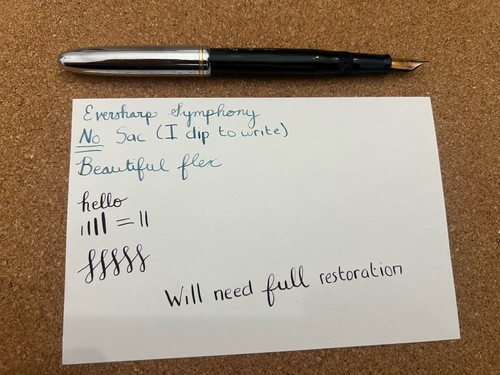 Eversharp Symphony
No Sac (I dip to write)
Beautiful flex
hello
Will need full restoration